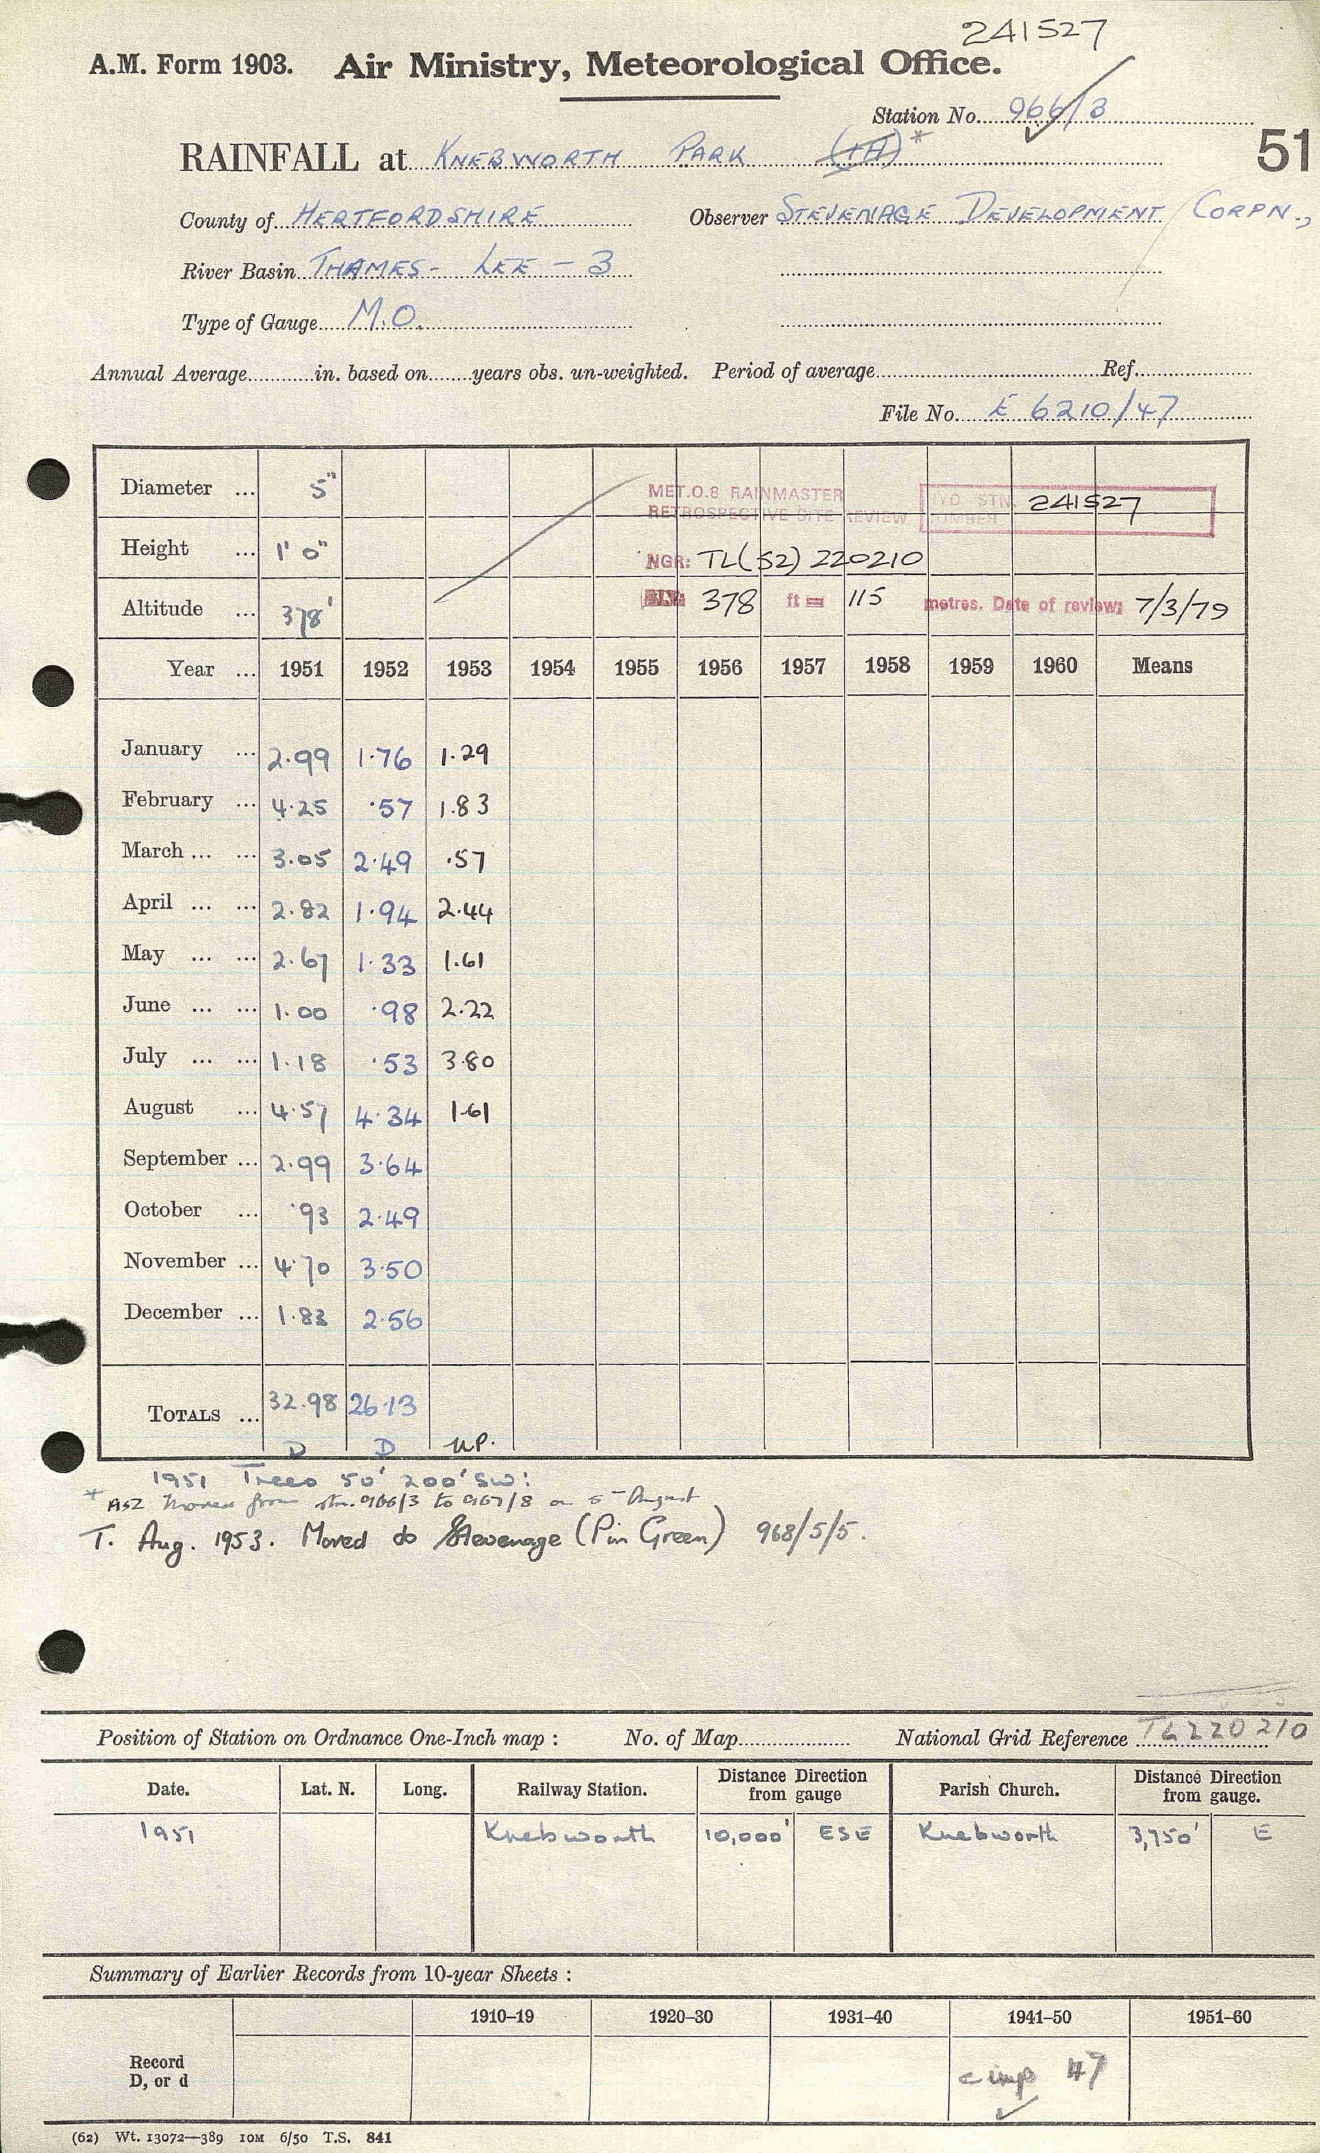 241527
A.M. Form 1903. Air Ministry, Meteorological Office.
Station No. 966/3
RAINFALL at KNEBWORTH PARK (TH)* 51
County of HERTFORDSHIRE Observer STEVENAGE DEVELOPMENT CORPN.,
River Basin THAMES - LEE - 3
Type of Gauge M.O.
Annual Average in. based on years obs. un-weighted. Period of average Ref.
File No. E 6210/47
Diameter ... 5" MET.O.8 RAINMASTER
RETROSPECTIVE SITE REVIEW HYD. STN. NUMBER 241527
Height ... 1' 0" NGR: TL(52) 220210
Altitude ... 378' 378 ft = 115 metres. Date of review: 7/3/79
Year ... 1951 1952 1953 1954 1955 1956 1957 1958 1959 1960 Means
January ... 2.99 1.76 1.29
February ... 4.25 .57 1.83
March ... ... 3.05 2.49 .57
April ... ... 2.82 1.94 2.44
May ... ... 2.67 1.33 1.61
June ... ... 1.00 .98 2.22
July ... ... 1.18 .53 3.80
August ... 4.57 4.34 1.61
September ... 2.99 3.64
October ... .93 2.49
November ... 4.70 3.50
December ... 1.83 2.56
TOTALS ... 32.98 26.13
D D
1951 Trees 50' 200' SW:
* Moved from stn. 966/3 to 967/8 on August
T. Aug. 1953. Moved to Stevenage (Pin Green) 968/5/5.
Position of Station on Ordnance One-Inch map : No. of Map National Grid Reference TL 220 210
Date. Lat. N. Long. Railway Station. Distance from gauge Direction Parish Church. Distance from gauge. Direction
1951 Knebworth 10,000' ESE Knebworth 3,750' E
Summary of Earlier Records from 10-year Sheets :
1910–19 1920–30 1931–40 1941–50 1951–60
Record
D, or d 47
(62) Wt. 13072—389 10M 6/50 T.S. 841